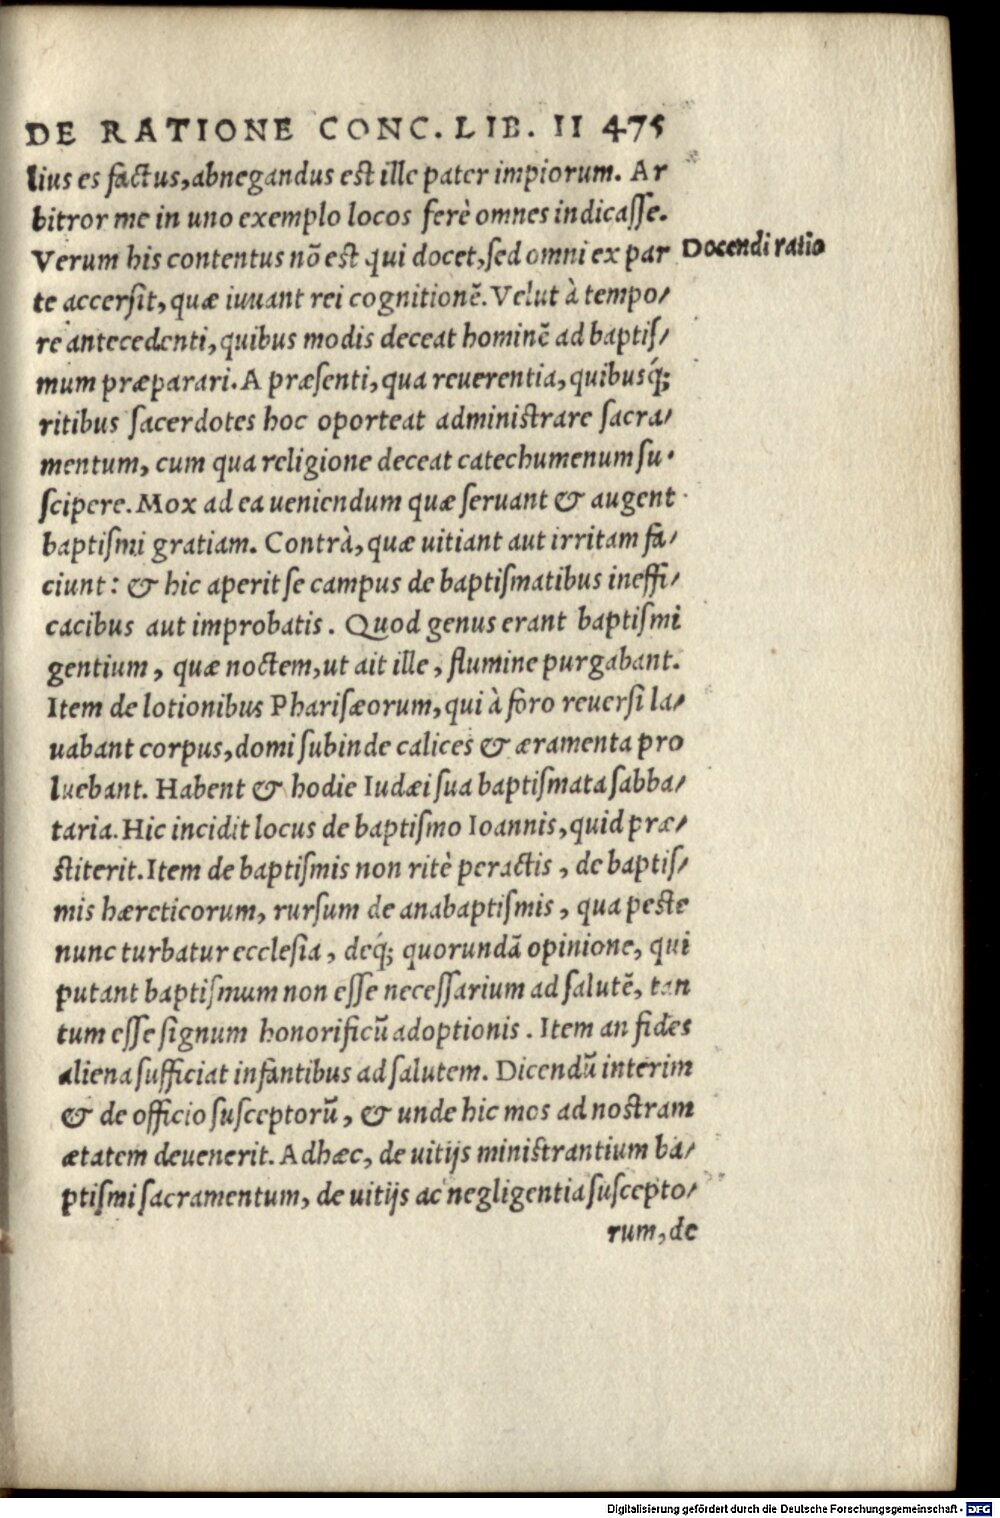 DE RATIONE CONC. LIB. II 475
lius es factus, abnegandus est ille pater impiorum. Ar
bitror me in uno exemplo locos ferè omnes indicasse.
Verum his contentus nõ est qui docet, sed omni ex par
Docendi ratio
te accersit, quæ iuuant rei cognitionẽ. Velut à tempo/
re antecedenti, quibus modis deceat hominẽ ad baptis/
mum præparari. A præsenti, qua reuerentia, quibusq́;
ritibus sacerdotes hoc oporteat administrare sacra/
mentum, cum qua religione deceat catechumenum su-
scipere. Mox ad ea ueniendum quæ seruant & augent
baptismi gratiam. Contrà, quæ uitiant aut irritam fa/
ciunt: & hic aperit se campus de baptismatibus ineffi/
cacibus aut improbatis. Quod genus erant baptismi
gentium, quæ noctem, ut ait ille, flumine purgabant.
Item de lotionibus Pharisæorum, qui à foro reuersi la/
uabant corpus, domi subinde calices & æramenta pro
luebant. Habent & hodie Iudæi sua baptismata sabba/
taria. Hic incidit locus de baptismo Ioannis, quid præ/
stiterit. Item de baptismis non ritè peractis, de baptis/
mis hæreticorum, rursum de anabaptismis, qua peste
nunc turbatur ecclesia, deq́; quorundã opinione, qui
putant baptismum non esse necessarium ad salutẽ, tan
tum esse signum honorificũ adoptionis. Item an fides
aliena sufficiat infantibus ad salutem. Dicendũ interim
& de officio susceptorũ, & unde hic mos ad nostram
ætatem deuenerit. Adhæc, de uitijs ministrantium ba/
ptismi sacramentum, de uitijs ac negligentia suscepto/
rum, de
Digitalisierung gefördert durch die Deutsche Forschungsgemeinschaft - DFG